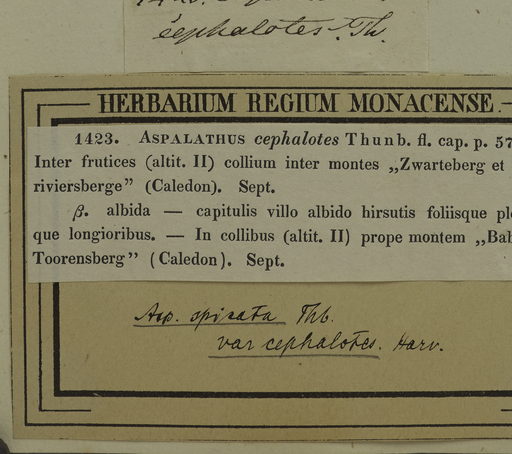 cephalotes. Th.
HERBARIUM REGIUM MONACENSE.
1423. ASPALATHUS cephalotes Thunb. fl. cap. p. 57
Inter frutices (altit. II) collium inter montes „Zwarteberg et
riviersberge” (Caledon). Sept.
β. albida — capitulis villo albido hirsutis foliisque
que longioribus. — In collibus (altit. II) prope montem
Toorensberg” (Caledon). Sept.
Asp. spicata Thb.
var cephalotes. Harv.